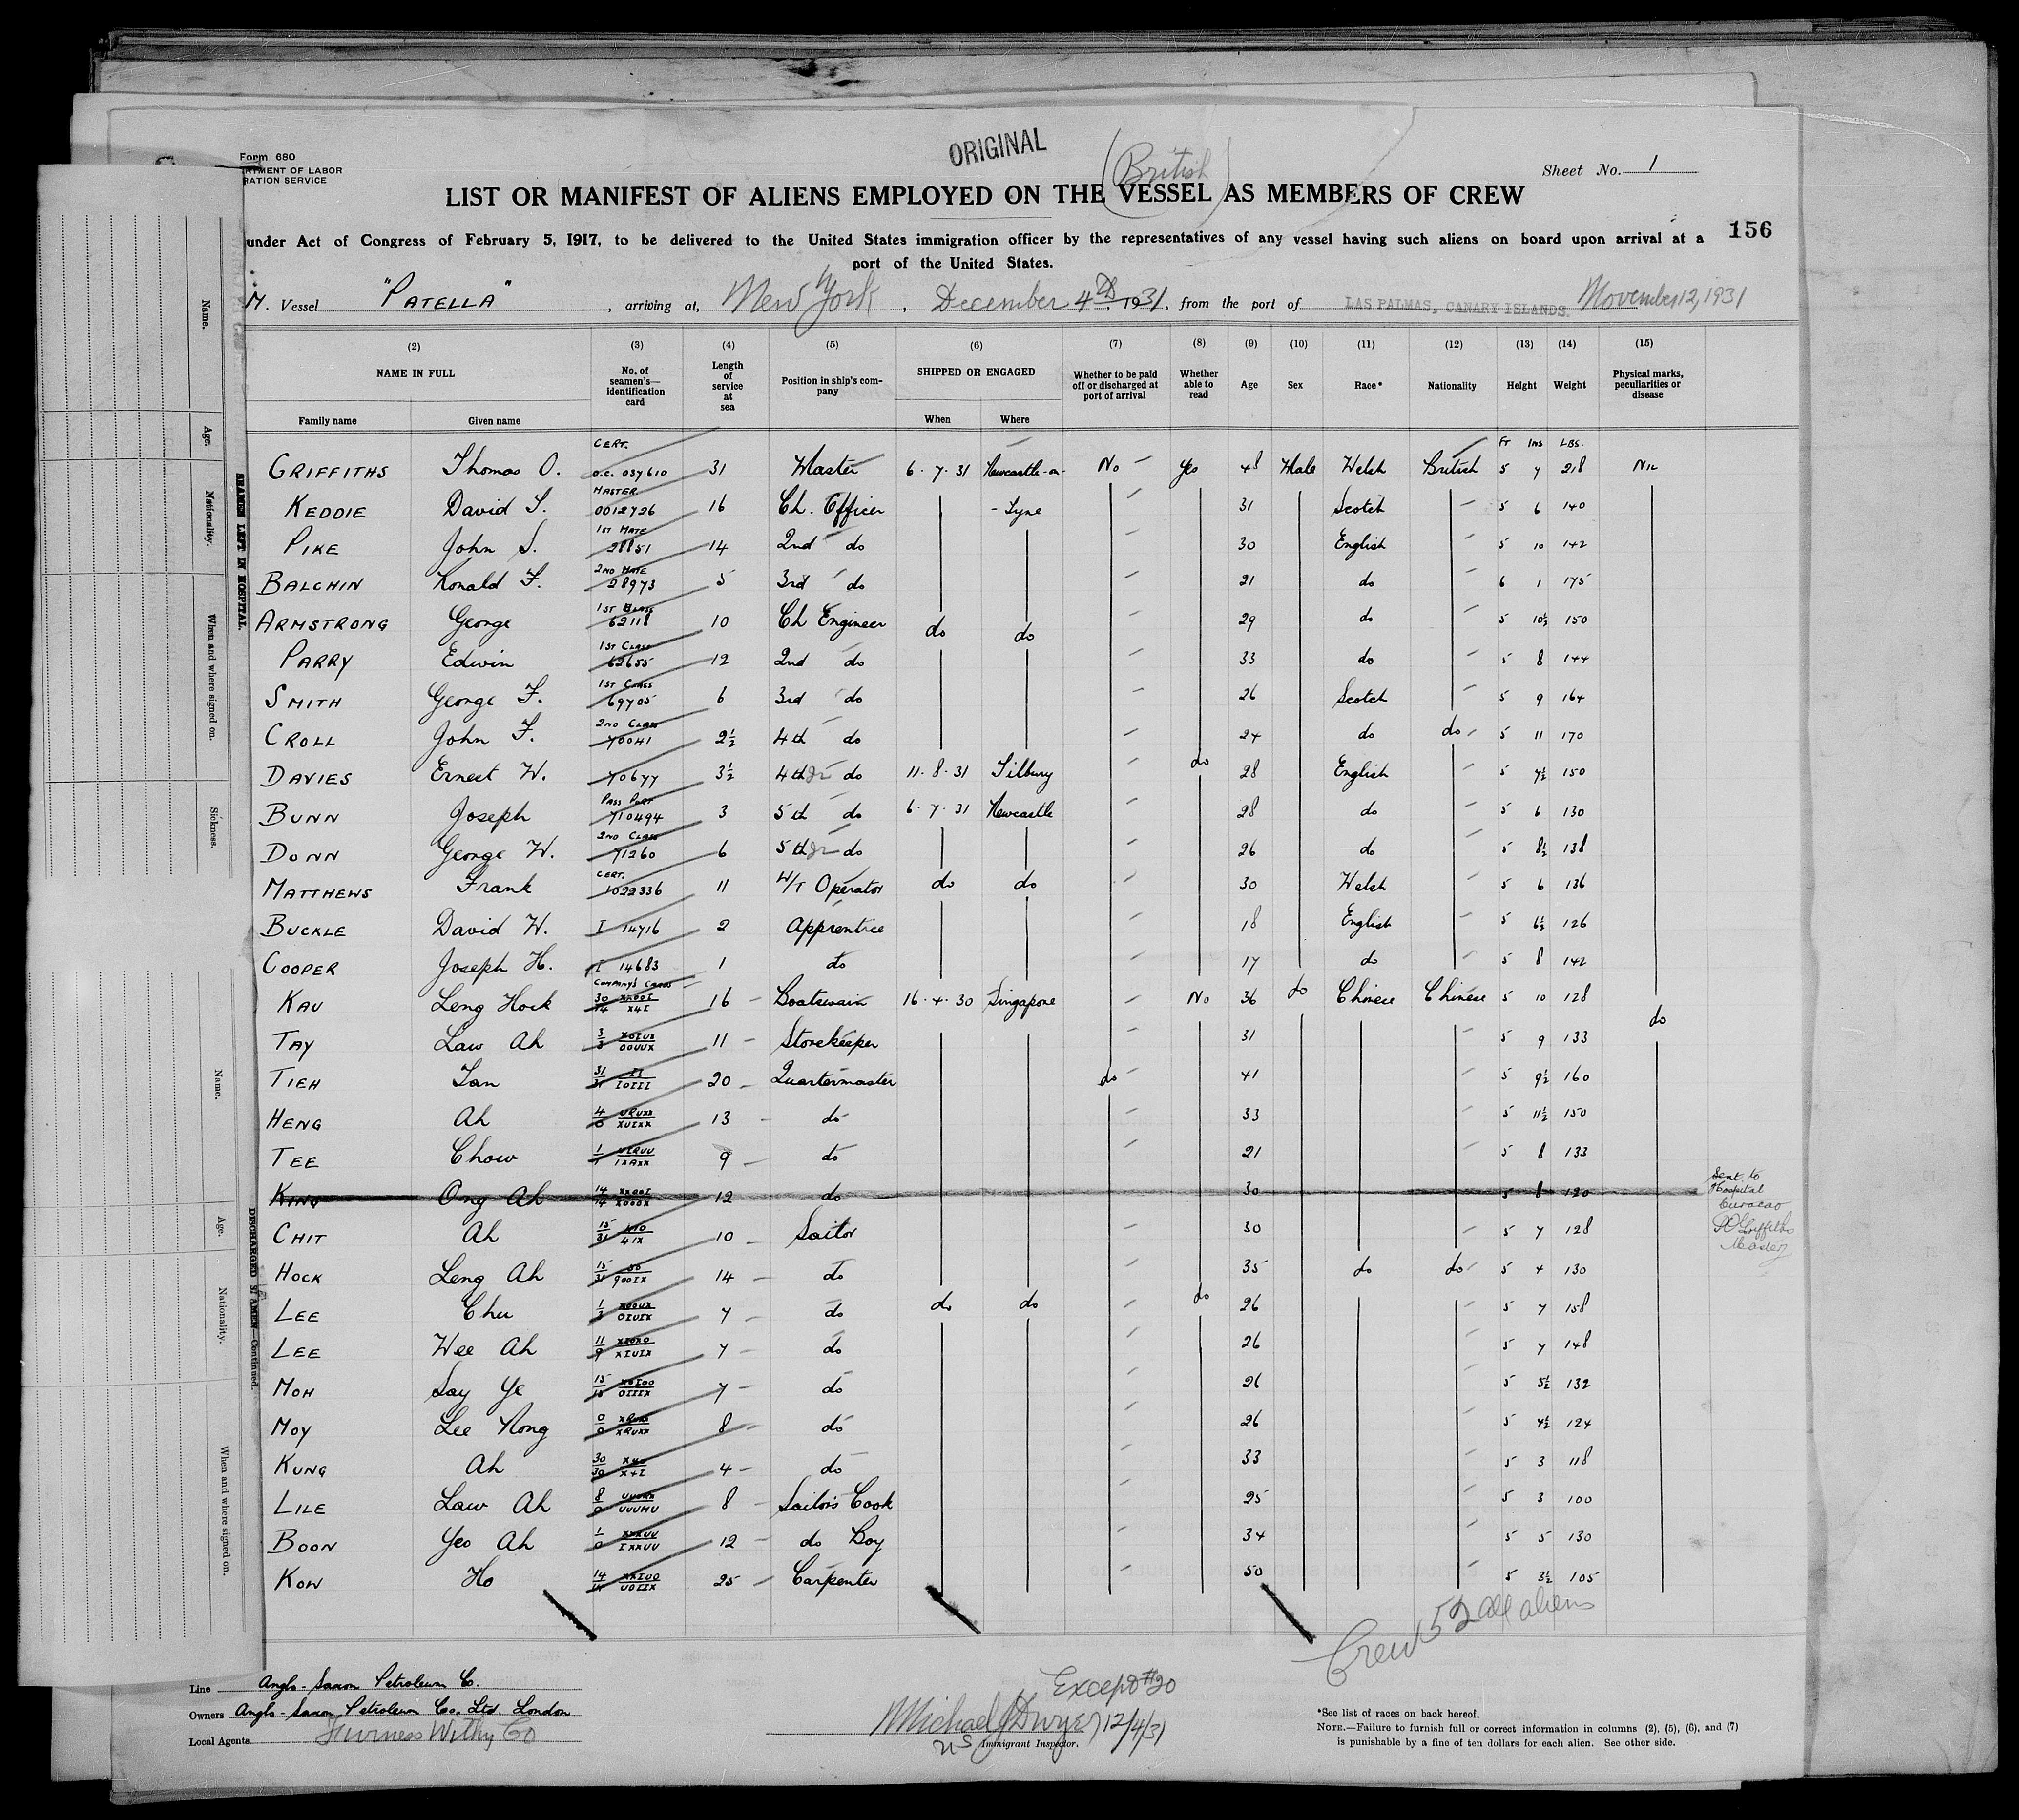 ORIGINAL
(British)
Form 680
RTMENT OF LABOR
RATION SERVICE
Sheet No. 1
LIST OR MANIFEST OF ALIENS EMPLOYED ON THE VESSEL AS MEMBERS OF CREW
156
under Act of Congress of February 5, 1917, to be delivered to the United States immigration officer by the representatives of any vessel having such aliens on board upon arrival at a
port of the United States.
M. Vessel "PATELLA", arriving at, New York, December 4th, 1931, from the port of LAS PALMAS, CANARY ISLANDS. November 12, 1931
(2) (3) (4) (5) (6) (7) (8) (9) (10) (11) (12) (13) (14) (15)
NAME IN FULL No. of seamen's—identification card Length of service at sea Position in ship's company SHIPPED OR ENGAGED Whether to be paid off or discharged at port of arrival Whether able to read Age Sex Race* Nationality Height Weight Physical marks, peculiarities or disease
Family name Given name When Where
CERT. Ft Ins LBS.
GRIFFITHS Thomas O. O.C. 037610 31 Master 6.7.31 Newcastle-on- No Yes 48 Male Welsh British 5 7 218 Nil
MASTER
KEDDIE David S. 0012726 16 Ch. Officer -Tyne 31 Scotch 5 6 140
1ST MATE
PIKE John S. 28851 14 2nd do 30 English 5 10 142
2ND MATE
BALCHIN Ronald F. 28973 5 3rd do 21 do 6 1 175
1ST CLASS
ARMSTRONG George 62118 10 Ch Engineer do do 29 do 5 10½ 150
1ST CLASS
PARRY Edwin 62655 12 2nd do 33 do 5 8 144
1ST CLASS
SMITH George F. 69705 6 3rd do 26 Scotch 5 9 164
2ND CLASS
CROLL John F. 70041 2½ 4th do 24 do do 5 11 170
DAVIES Ernest W. 70677 3½ 4th Jr do 11.8.31 Tilbury do 28 English 5 7½ 150
PASS PORT
BUNN Joseph 710494 3 5th do 6.7.31 Newcastle 28 do 5 6 130
2ND CLASS
DONN George W. 71260 6 5th Jr do 26 do 5 8½ 138
CERT.
MATTHEWS Frank 1022336 11 W/T Operator do do 30 Welsh 5 6 136
BUCKLE David W. I 14716 2 Apprentice 18 English 5 6½ 126
COOPER Joseph H. I 14683 1 do 17 do 5 8 142
COMPANY'S CARDS
KAU Leng Hock 16 Boatswain 16.4.30 Singapore No 36 do Chinese Chinese 5 10 128
TAY Law Ah 11 Storekeeper 31 5 9 133 do
TIEH Tan 20 Quartermaster do 41 5 9½ 160
HENG Ah 13 do 33 5 11½ 150
TEE Chow 9 do 21 5 8 133
KING Ong Ah 12 do 30 5 8 120 Sent to Hospital Curacao TOGriffiths Master
CHIT Ah 10 Sailor 30 5 7 128
HOCK Leng Ah 14 do 35 do do 5 4 130
LEE Chu 7 do do do do 26 5 7 158
LEE Wee Ah 7 do 26 5 7 148
MOH Say Ye 7 do 26 5 5½ 132
MOY Lee Nong 8 do 26 5 4½ 124
KUNG Ah 4 do 33 5 3 118
LILE Law Ah 8 Sailor's Cook 25 5 3 100
BOON Yeo Ah 12 do Boy 34 5 5 130
KOW Ho 25 Carpenter 50 5 3½ 105
Crew 52 all aliens
Except #20
Line Anglo-Saxon Petroleum Co.
Owners Anglo-Saxon Petroleum Co. Ltd. London
Local Agents Furness Withy Co
Michael J Dwyer 12/4/31
US Immigrant Inspector.
*See list of races on back hereof.
NOTE.—Failure to furnish full or correct information in columns (2), (5), (6), and (7)
is punishable by a fine of ten dollars for each alien. See other side.
SEAMEN LEFT IN HOSPITAL
Name.
Age.
Nationality.
When and where signed on.
Sickness.
DISCHARGED SEAMEN—Continued.
Name.
Age.
Nationality.
When and where signed on.